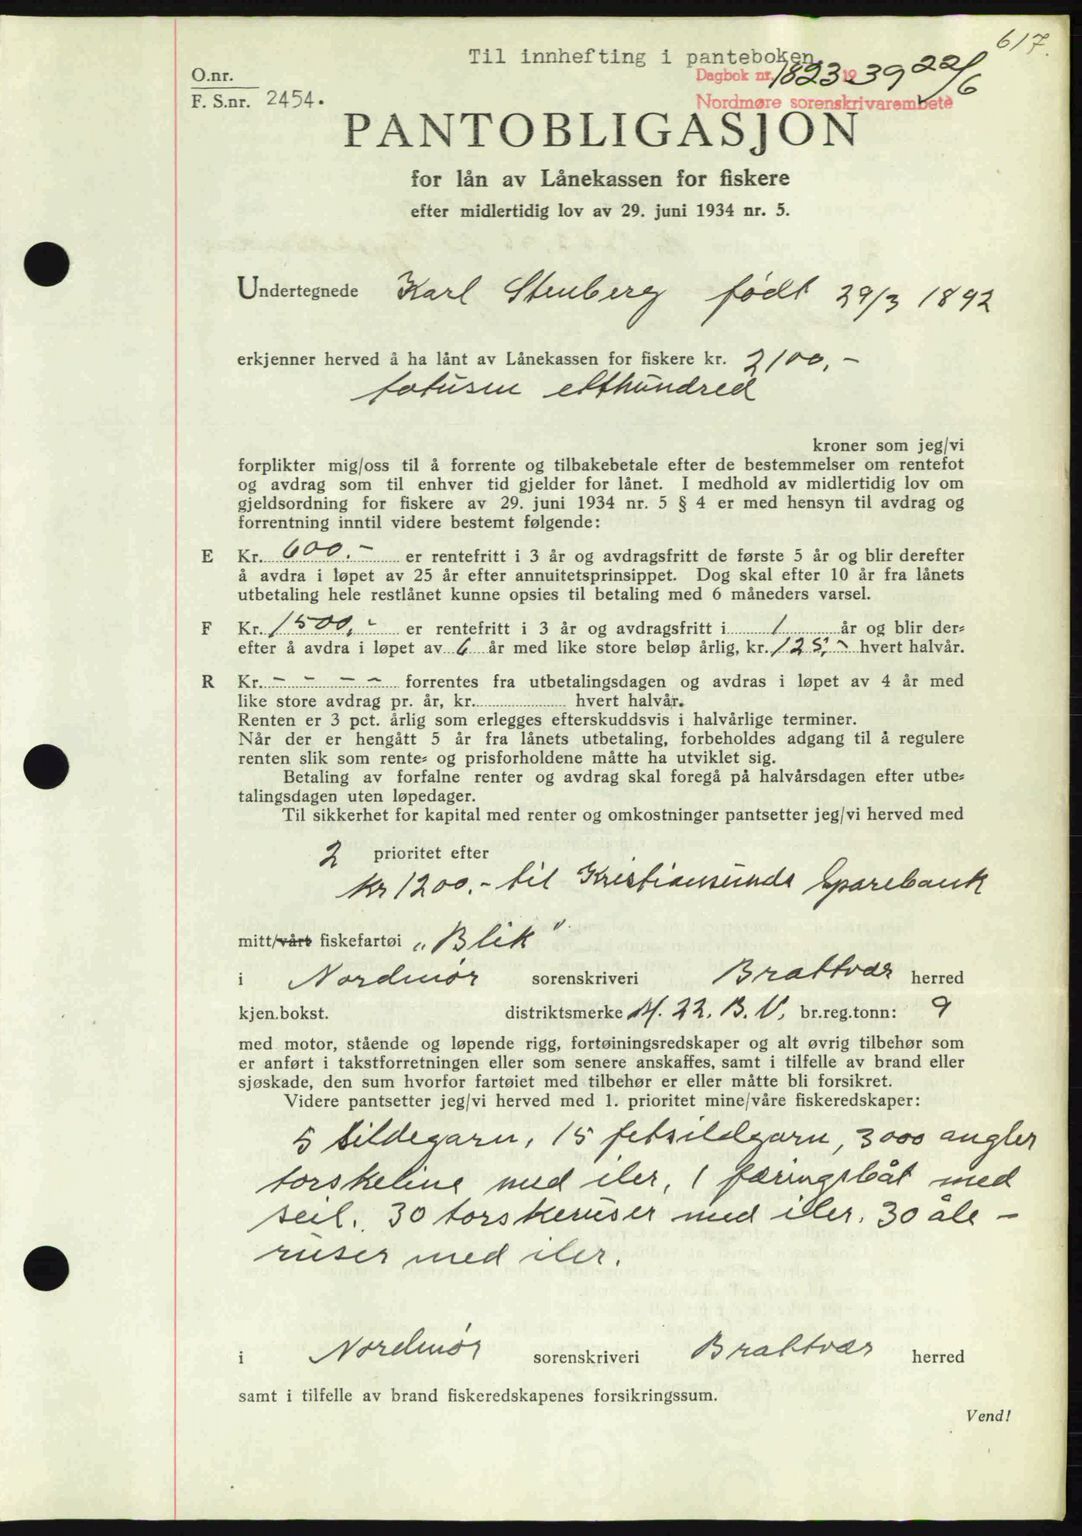 617.
Til innhefting i panteboken.
O.nr.
Dagbok nr. 1823 19 39 22/6
F. S.nr. 2454.
Nordmøre sorenskrivarembete
PANTOBLIGASJON
for lån av Lånekassen for fiskere
efter midlertidig lov av 29. juni 1934 nr. 5.
Undertegnede Karl Stenberg født 29/3 1892
erkjenner herved å ha lånt av Lånekassen for fiskere kr. 2100,-
totusen etthundred
kroner som jeg/vi
forplikter mig/oss til å forrente og tilbakebetale efter de bestemmelser om rentefot
og avdrag som til enhver tid gjelder for lånet. I medhold av midlertidig lov om
gjeldsordning for fiskere av 29. juni 1934 nr. 5 § 4 er med hensyn til avdrag og
forrentning inntil videre bestemt følgende:
E Kr. 600.- er rentefritt i 3 år og avdragsfritt de første 5 år og blir derefter
å avdra i løpet av 25 år efter annuitetsprinsippet. Dog skal efter 10 år fra lånets
utbetaling hele restlånet kunne opsies til betaling med 6 måneders varsel.
F Kr. 1500,- er rentefritt i 3 år og avdragsfritt i 1 år og blir der-
efter å avdra i løpet av 6 år med like store beløp årlig, kr. 125,- hvert halvår.
R Kr. - - - - forrentes fra utbetalingsdagen og avdras i løpet av 4 år med
like store avdrag pr. år, kr. hvert halvår.
Renten er 3 pct. årlig som erlegges efterskuddsvis i halvårlige terminer.
Når der er hengått 5 år fra lånets utbetaling, forbeholdes adgang til å regulere
renten slik som rente- og prisforholdene måtte ha utviklet sig.
Betaling av forfalne renter og avdrag skal foregå på halvårsdagen efter utbe-
talingsdagen uten løpedager.
Til sikkerhet for kapital med renter og omkostninger pantsetter jeg/vi herved med
2 prioritet efter
kr 1200.- til Kristiansunds Sparebank
mitt/vårt fiskefartøi "Blik"
i Nordmør sorenskriveri Brattvær herred
kjen.bokst. distriktsmerke M. 22. B. V, br.reg.tonn: 9
med motor, stående og løpende rigg, fortøiningsredskaper og alt øvrig tilbehør som
er anført i takstforretningen eller som senere anskaffes, samt i tilfelle av brand eller
sjøskade, den sum hvorfor fartøiet med tilbehør er eller måtte bli forsikret.
Videre pantsetter jeg/vi herved med 1. prioritet mine/våre fiskeredskaper:
5 sildegarn, 15 fetsildgarn, 3000 angler
torskeline med iler, 1 færingsbåt med
seil. 30 torskeruser med iler. 30 åle-
ruser med iler.
i Nordmør sorenskriveri Brattvær herred
samt i tilfelle av brand fiskeredskapenes forsikringssum.
Vend!